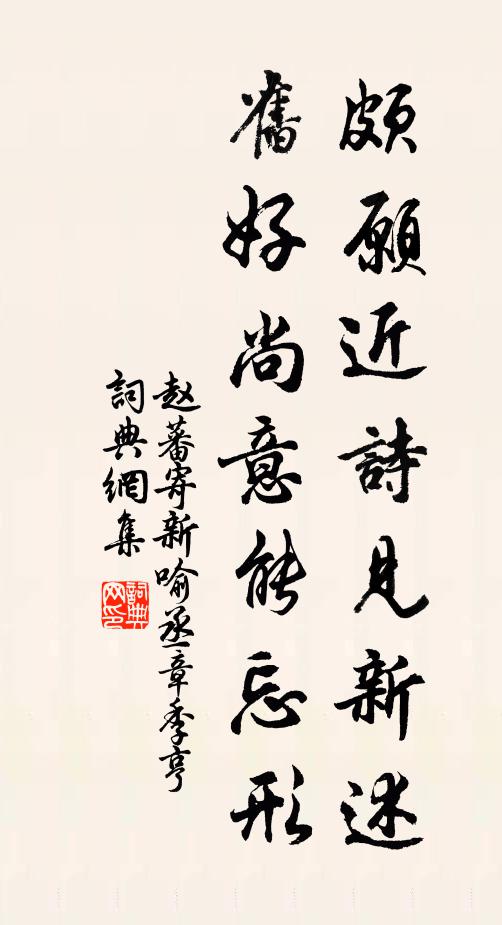 頗願近詩見新述
舊好尚意能忘形
赵蕃寄新喻丞章季亨
詞典網集
詞典网印